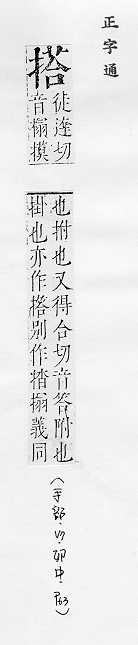 正字通
搭
徒逹切
音搨摸
也拊也又得合切音答附也
掛也亦作撘别作㩉搨義同
(手部·卯中·P.63)